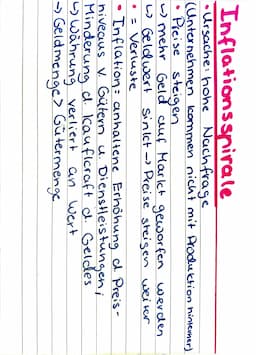 Inflationsspirale
• Ursache: hohe Nachfrage
(Unternehmen kommen nicht mit Produktion hinterher)
• Preise steigen
↳ mehr Geld auf Markt geworfen werden
↳ Geldwert sinkt → Preise steigen weiter
• = Verluste
• Inflation: anhaltene Erhöhung d. Preis-
niveaus v. Gütern u. Dienstleistungen;
Minderung d. Kaufkraft d. Geldes
↳ Währung verliert an Wert
→ Geldmenge > Gütermenge